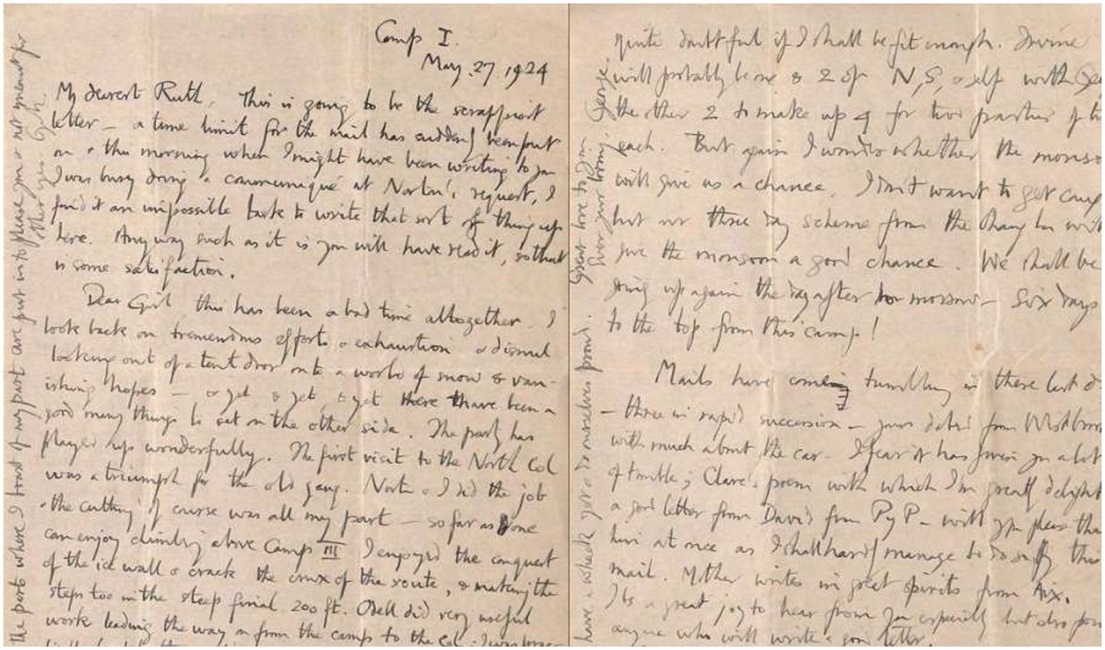 Camp I.
May. 27, 1924
My dearest Ruth, This is going to be the scrappiest
letter — a time limit for the mail has suddenly been put
on & this morning when I might have been writing to you
I was busy doing a communiqué at Norton's request, I
find it an impossible task to write that sort of thing up
here. Anyway such as it is you will have read it, so that
is some satisfaction.
Dear Girl, this has been a bad time altogether. I
look back on tremendous efforts & exhaustion & dismal
looking out of a tent door onto a world of snow & van-
ishing hopes — & yet, & yet, & yet there have been a
good many things to set on the other side. The party has
played up wonderfully. The first visit to the North Col
was a triumph for the old gang. Norton & I did the job
& the cutting of course was all my part — so far as one
can enjoy climbing above Camp III I enjoyed the conquest
of the ice wall & crack the crux of the route, & making the
steps too in the steep final 200 ft. Odell did very useful
work leading the way on from the camp to the Col; I was
The parts where I boast of my part are put in to please you & not meant for
other eyes G.M.
quite doubtful if I shall be fit enough. Irvine
will probably be one & 2 of N, S, & self with
the other 2 to make up 4 for two parties of
each. But again I wonder whether the
will give us a chance. I don't want to get
but our three day scheme from the Chang La
give the monsoon a good chance. We shall be
going up again the day after tomorrow — Six days
to the top from this camp!
Mails have coming tumbling in these last
— three in rapid succession — yours dated from
with much about the car. I fear it has given you a lot
of trouble; Clare's poem with which I'm greatly
a good letter from David from Py P — will you please
him at once as I shall hardly manage to do so by this
mail. Mother writes in great spirits from Aix.
It's a great joy to hear from you especially but also from
anyone who will write a good letter.
have a whack yet & do ourselves proud. Great love to you
Ever your loving George.